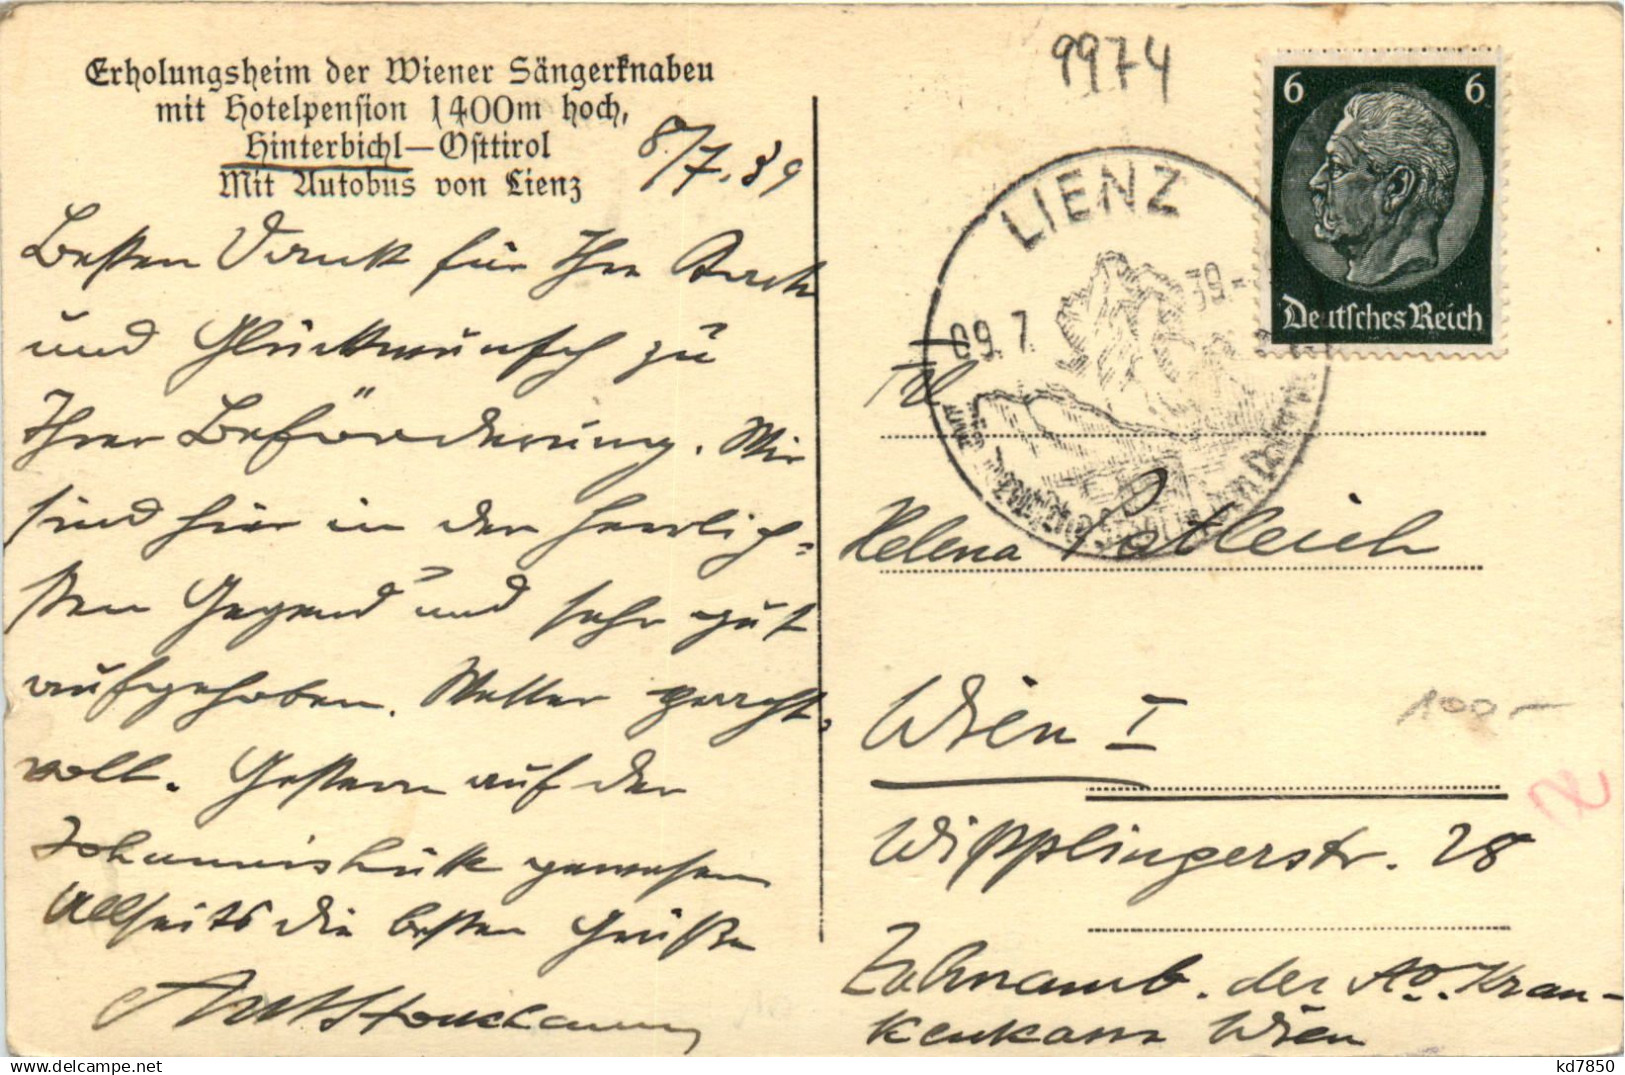 Erholungsheim der Wiener Sängerknaben
mit Hotelpension 1400m hoch,
Hinterbichl—Osttirol
Mit Autobus von Lienz
8/7.39
Besten Dank für Ihre Karte
und Glückwünsch zu
Ihrer Beförderung. Wir
sind hier in der herrlich=
sten Gegend und sehr gut
aufgehoben. Wetter pracht-
voll. Gestern auf der
Johannishütte gewesen
Allseits die besten Grüße
9974
6 6
Deutsches Reich
LIENZ
09. 7. 39-
Frl
Helena Patleich
Wien I
100.-
Wipplingerstr. 28
Zahnamb. der Ao. Kran-
kenkassa Wien
kd7850